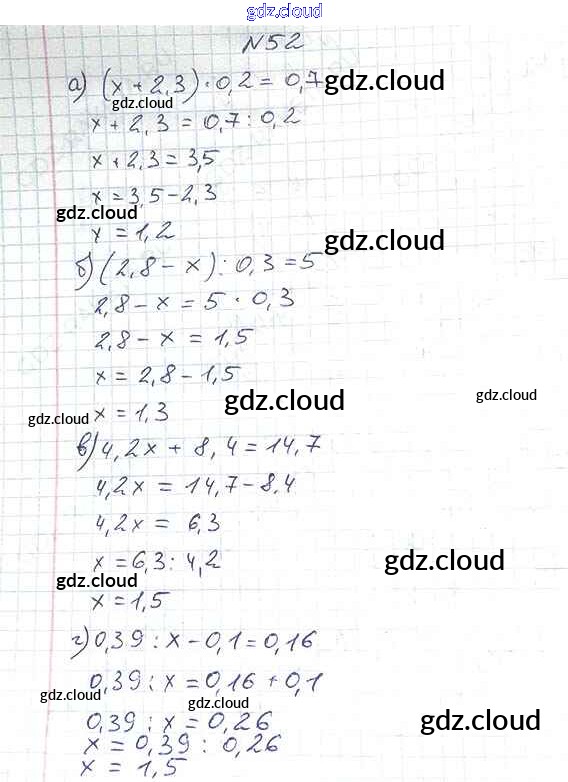 gdz.cloud
N52
а) (x + 2,3) · 0,2 = 0,7
gdz.cloud
gdz.cloud
x + 2,3 = 0,7 : 0,2
x + 2,3 = 3,5
x = 3,5 - 2,3
gdz.cloud
x = 1,2
gdz.cloud
б) (2,8 - x) : 0,3 = 5
2,8 - x = 5 · 0,3
2,8 - x = 1,5
x = 2,8 - 1,5
gdz.cloud
gdz.cloud
x = 1,3
gdz.cloud
в) 4,2x + 8,4 = 14,7
4,2x = 14,7 - 8,4
4,2x = 6,3
x = 6,3 : 4,2
gdz.cloud
gdz.cloud
x = 1,5
г) 0,39 : x - 0,1 = 0,16
0,39 : x = 0,16 + 0,1
gdz.cloud
gdz.cloud
0,39 : x = 0,26
gdz.cloud
x = 0,39 : 0,26
x = 1,5